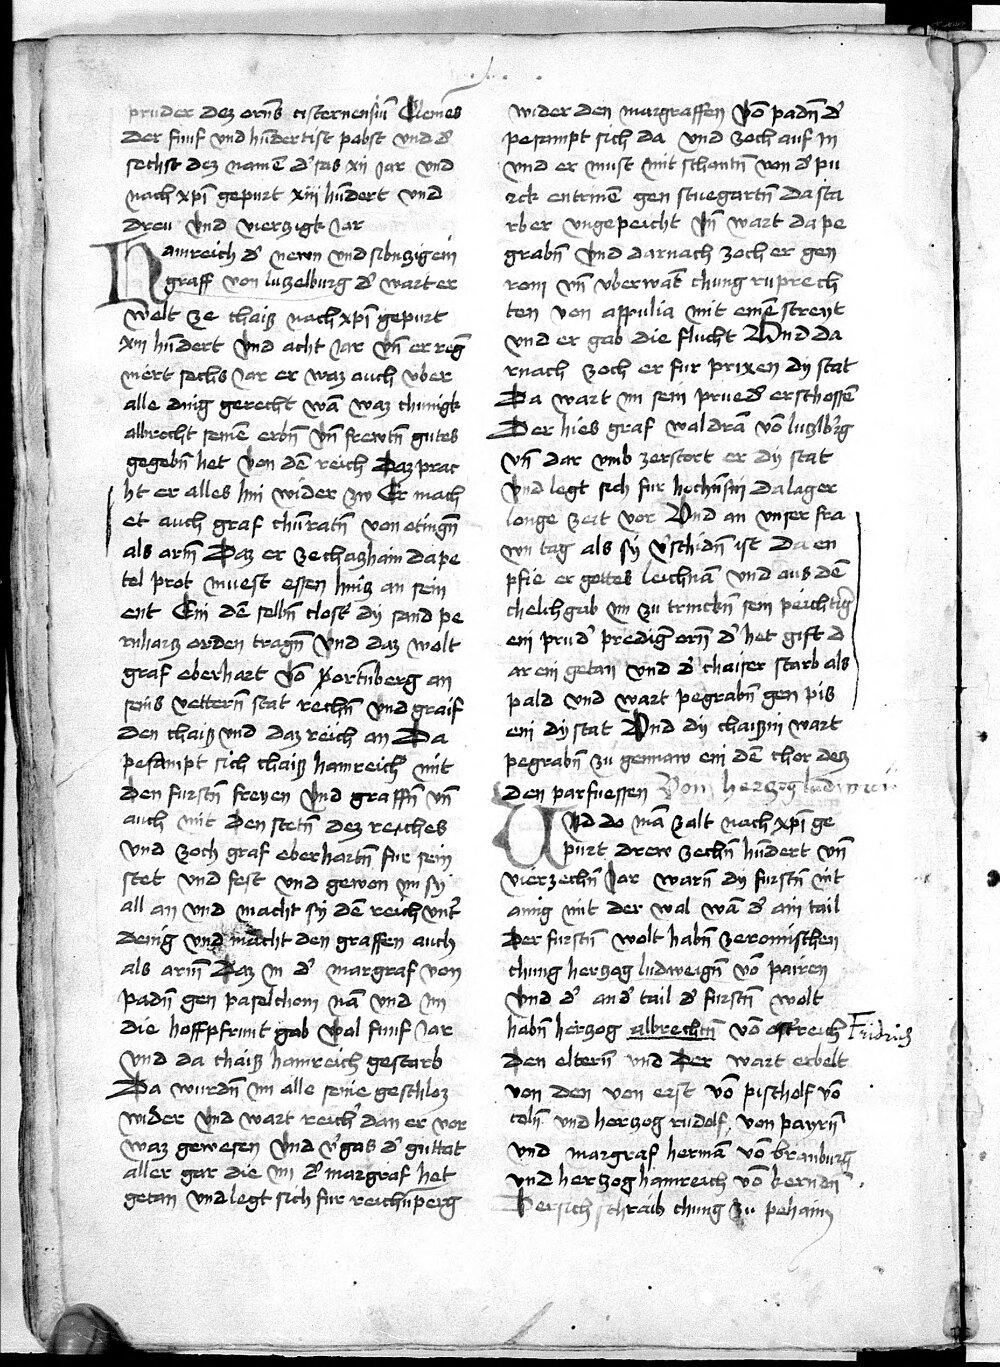 pruder dez orns cisternensiu Clemes
der finf und hundertist pabst und d
sechst dez name d sas xii jar und
nach xpi gepurt xiii hundert und
dreu und vierzigk jar
Hainreich d newn und sibnzig ein
graff von luzelburg d wart er
welt ze chaiz nach xpi gepurt
xiii hundert und acht jar un er reg
niert sechs jar er waz auch uber
alle ding gerecht wa waz chunigk
albrecht seine erbn un frewtn gutes
gegebn het von de reich Daz prac
ht er alles hin wider zw Er mach
et auch graf chunratn von otingn
als arm Daz er ze chazhaim da pe
tel prot muest essen hintz an sein
ent Ein de selbn clost dy sand pe
rnhartz orden tragn und daz wolt
graf eberhart vo wortnberg an
seins vettern stat rechn und graif
den chaiz und daz reich an Da
pesampt sich chaiz hainreich mit
den furstn freyen und graffn un
auch mit den stetn dez reiches
und zoch graf eberhartn fur sein
stet und fest und gewon im sy
all an und macht sy de reich unt
denig und macht den graffen auch
als arm Daz in d margraf von
padn gen paselchom nam und im
die hoffpfrunt gab wal funf jar
und da chaiz hainreich gestarb
Da wurdn im alle seine geschloz
wider und wart reich dan er vor
waz gewesen und vgas d guttat
aller gar die im d margraf het
getan und legt sich fur reichnperg
wider den margraffen vo padn d
pesampt sich da und zoch auf in
und er must mit schantn von d pu
rck entrine gen stuegartn da sta
rber ungepeicht un wart da pe
grabn und darnach zoch er gen
rom un uberwat chung ruprech
ten von appulia mit eine streyt
und er gab die flucht Und da
rnach zoch er fur prixen dy stat
Da wart im sein prued erschossen
Der hies graf waldram vo lutzlbrg
un dar umb zerstort er dy stat
und legt sich fur hochnsin da lager
longe zeit vor Und an unser fra
wn tag als sy vschidn ist Da en
pfie er gottes leichnam und aus de
chelch gab im zu trinckn sein peichtig
ein prud prediger orn d het gift d
ar ein getan und d chaiser starb als
pald und wart pegrabn gen pis
ein dy stat Und dy chaizin wart
pegrabn zu gennaw ein de chor dez
den parfuessen Von herzog ludwig
Und do ma zalt nach xpi ge
purt drew zechn hundert un
vierzechn jar warn dy furstn nit
ainig mit der wal wa d ain tail
Der furstn wolt habn ze romischen
chung herzog ludweign vo pairen
und d and tail d furstn wolt
habn herzog albrechtn vo ostreich Fridrich
den eltern und Der wart erbelt
von den von erst vo pischolf vo
coln und herzog rudolf von payrn
und margraf herman vo branburg
und herzog hainreich vo kerndn
Der sich schraib chung zu pehaim